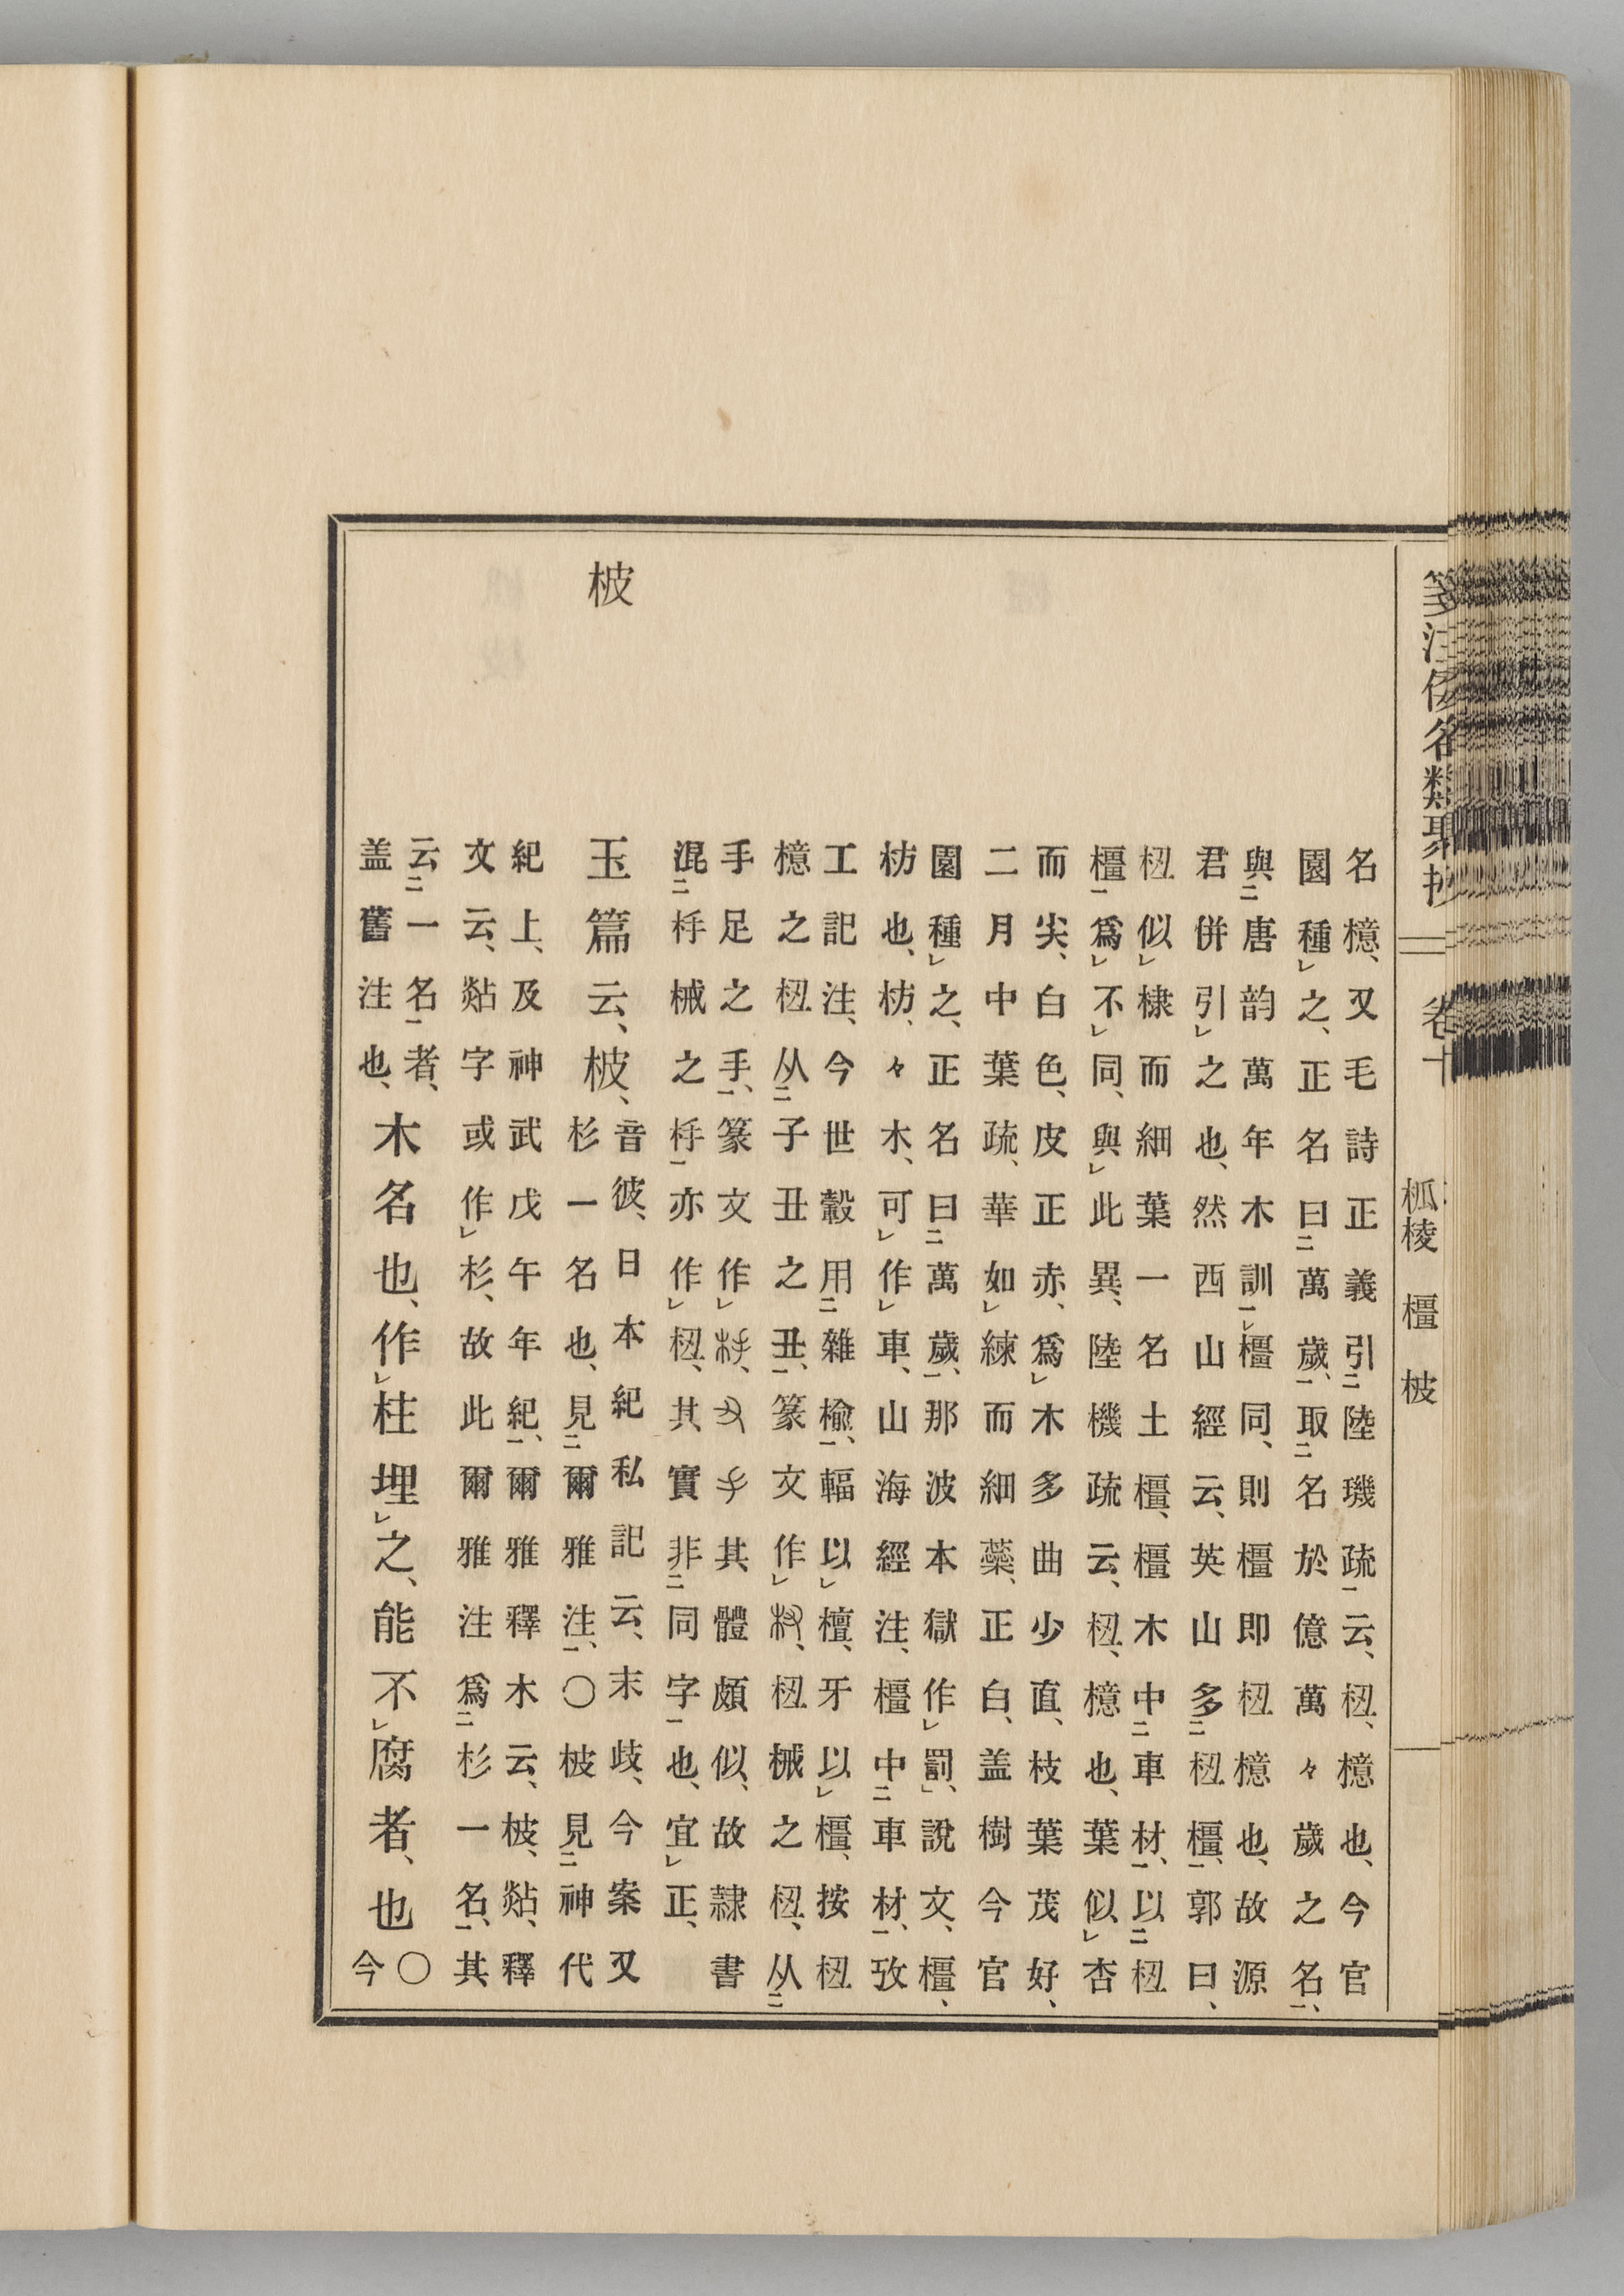 箋注倭名類聚抄 卷十 柧棱 橿 柀
名檍、又毛詩正義引陸璣疏云、杻、檍也、今官
園種之、正名曰萬歲、取名於億萬々歲之名、
與唐韵萬年木訓橿同、則橿即杻檍也、故源
君併引之也、然西山經云、英山多杻橿、郭曰、
杻似棣而細葉一名土橿、橿木中車材、以杻
橿爲不同、與此異、陸機疏云、杻、檍也、葉似杏
而尖、白色、皮正赤、爲木多曲少直、枝葉茂好、
二月中葉疏、華如練而細蘂、正白、盖樹今官
園種之、正名曰萬歲、那波本獄作罰、說文、橿、
枋也、枋、々木、可作車、山海經注、橿中車材、攷
工記注、今世轂用雜楡、輻以檀、牙以橿、按杻
檍之杻从子丑之丑、篆文作、杻械之杻、从
手足之手、篆文作、其體頗似、故隷書
混杽械之杽亦作杻、其實非同字也、宜正、
柀
玉篇云、柀、音彼、日本紀私記云、末歧、今案又
杉一名也、見爾雅注、〇柀見神代
紀上、及神武戊午年紀、爾雅釋木云、柀、煔、釋
文云、煔字或作杉、故此爾雅注爲杉一名、其
云一名者、
盖舊注也、
木名也、作柱埋之、能不腐者、也〇
今